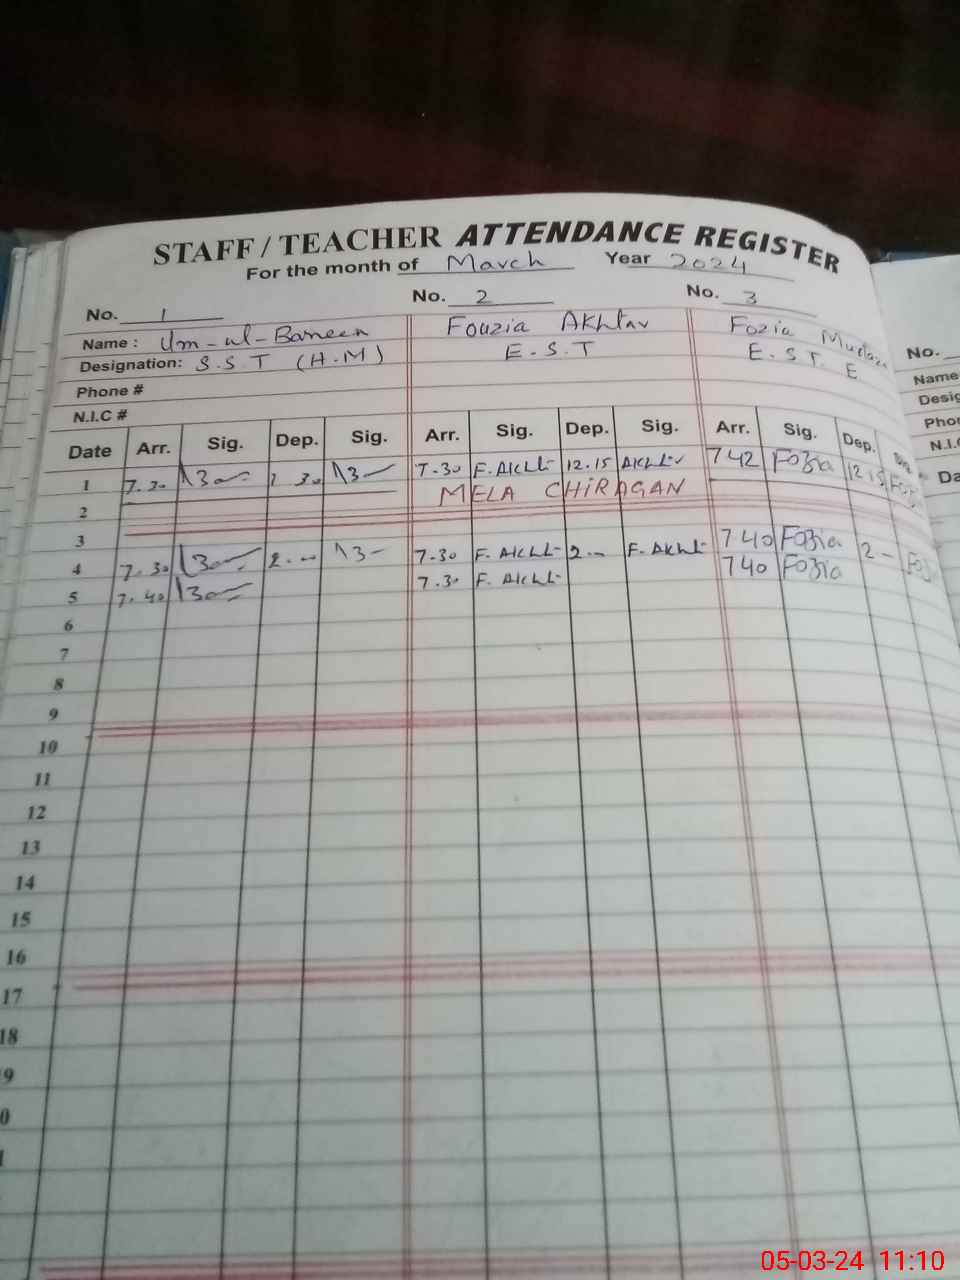 STAFF / TEACHER ATTENDANCE REGISTER
For the month of March Year 2024
No. 1 No. 2 No. 3 No.
Name : Um-ul-Baneen Fouzia Akhtar Fozia Murtaza Name
Designation: S.S.T (H.M) E.S.T E.S.T. E Desig
Phone # Phon
N.I.C # N.I.C
Date Arr. Sig. Dep. Sig. Arr. Sig. Dep. Sig. Arr. Sig. Dep. Sig. Da
1 7.30 30 7.30 F. Akht 12.15 Akhtr 7 42 Fozia 12 15 Foz
2 MELA CHIRAGAN
3
4 7.30 2.-- 7.30 F. Akht 2.-- F. Akht 7 40 Fozia 2 -- Foz
5 7.40 7.30 F. Akht 7 40 Fozia
6
7
8
9
10
11
12
13
14
15
16
17
18
9
0
05-03-24 11:10